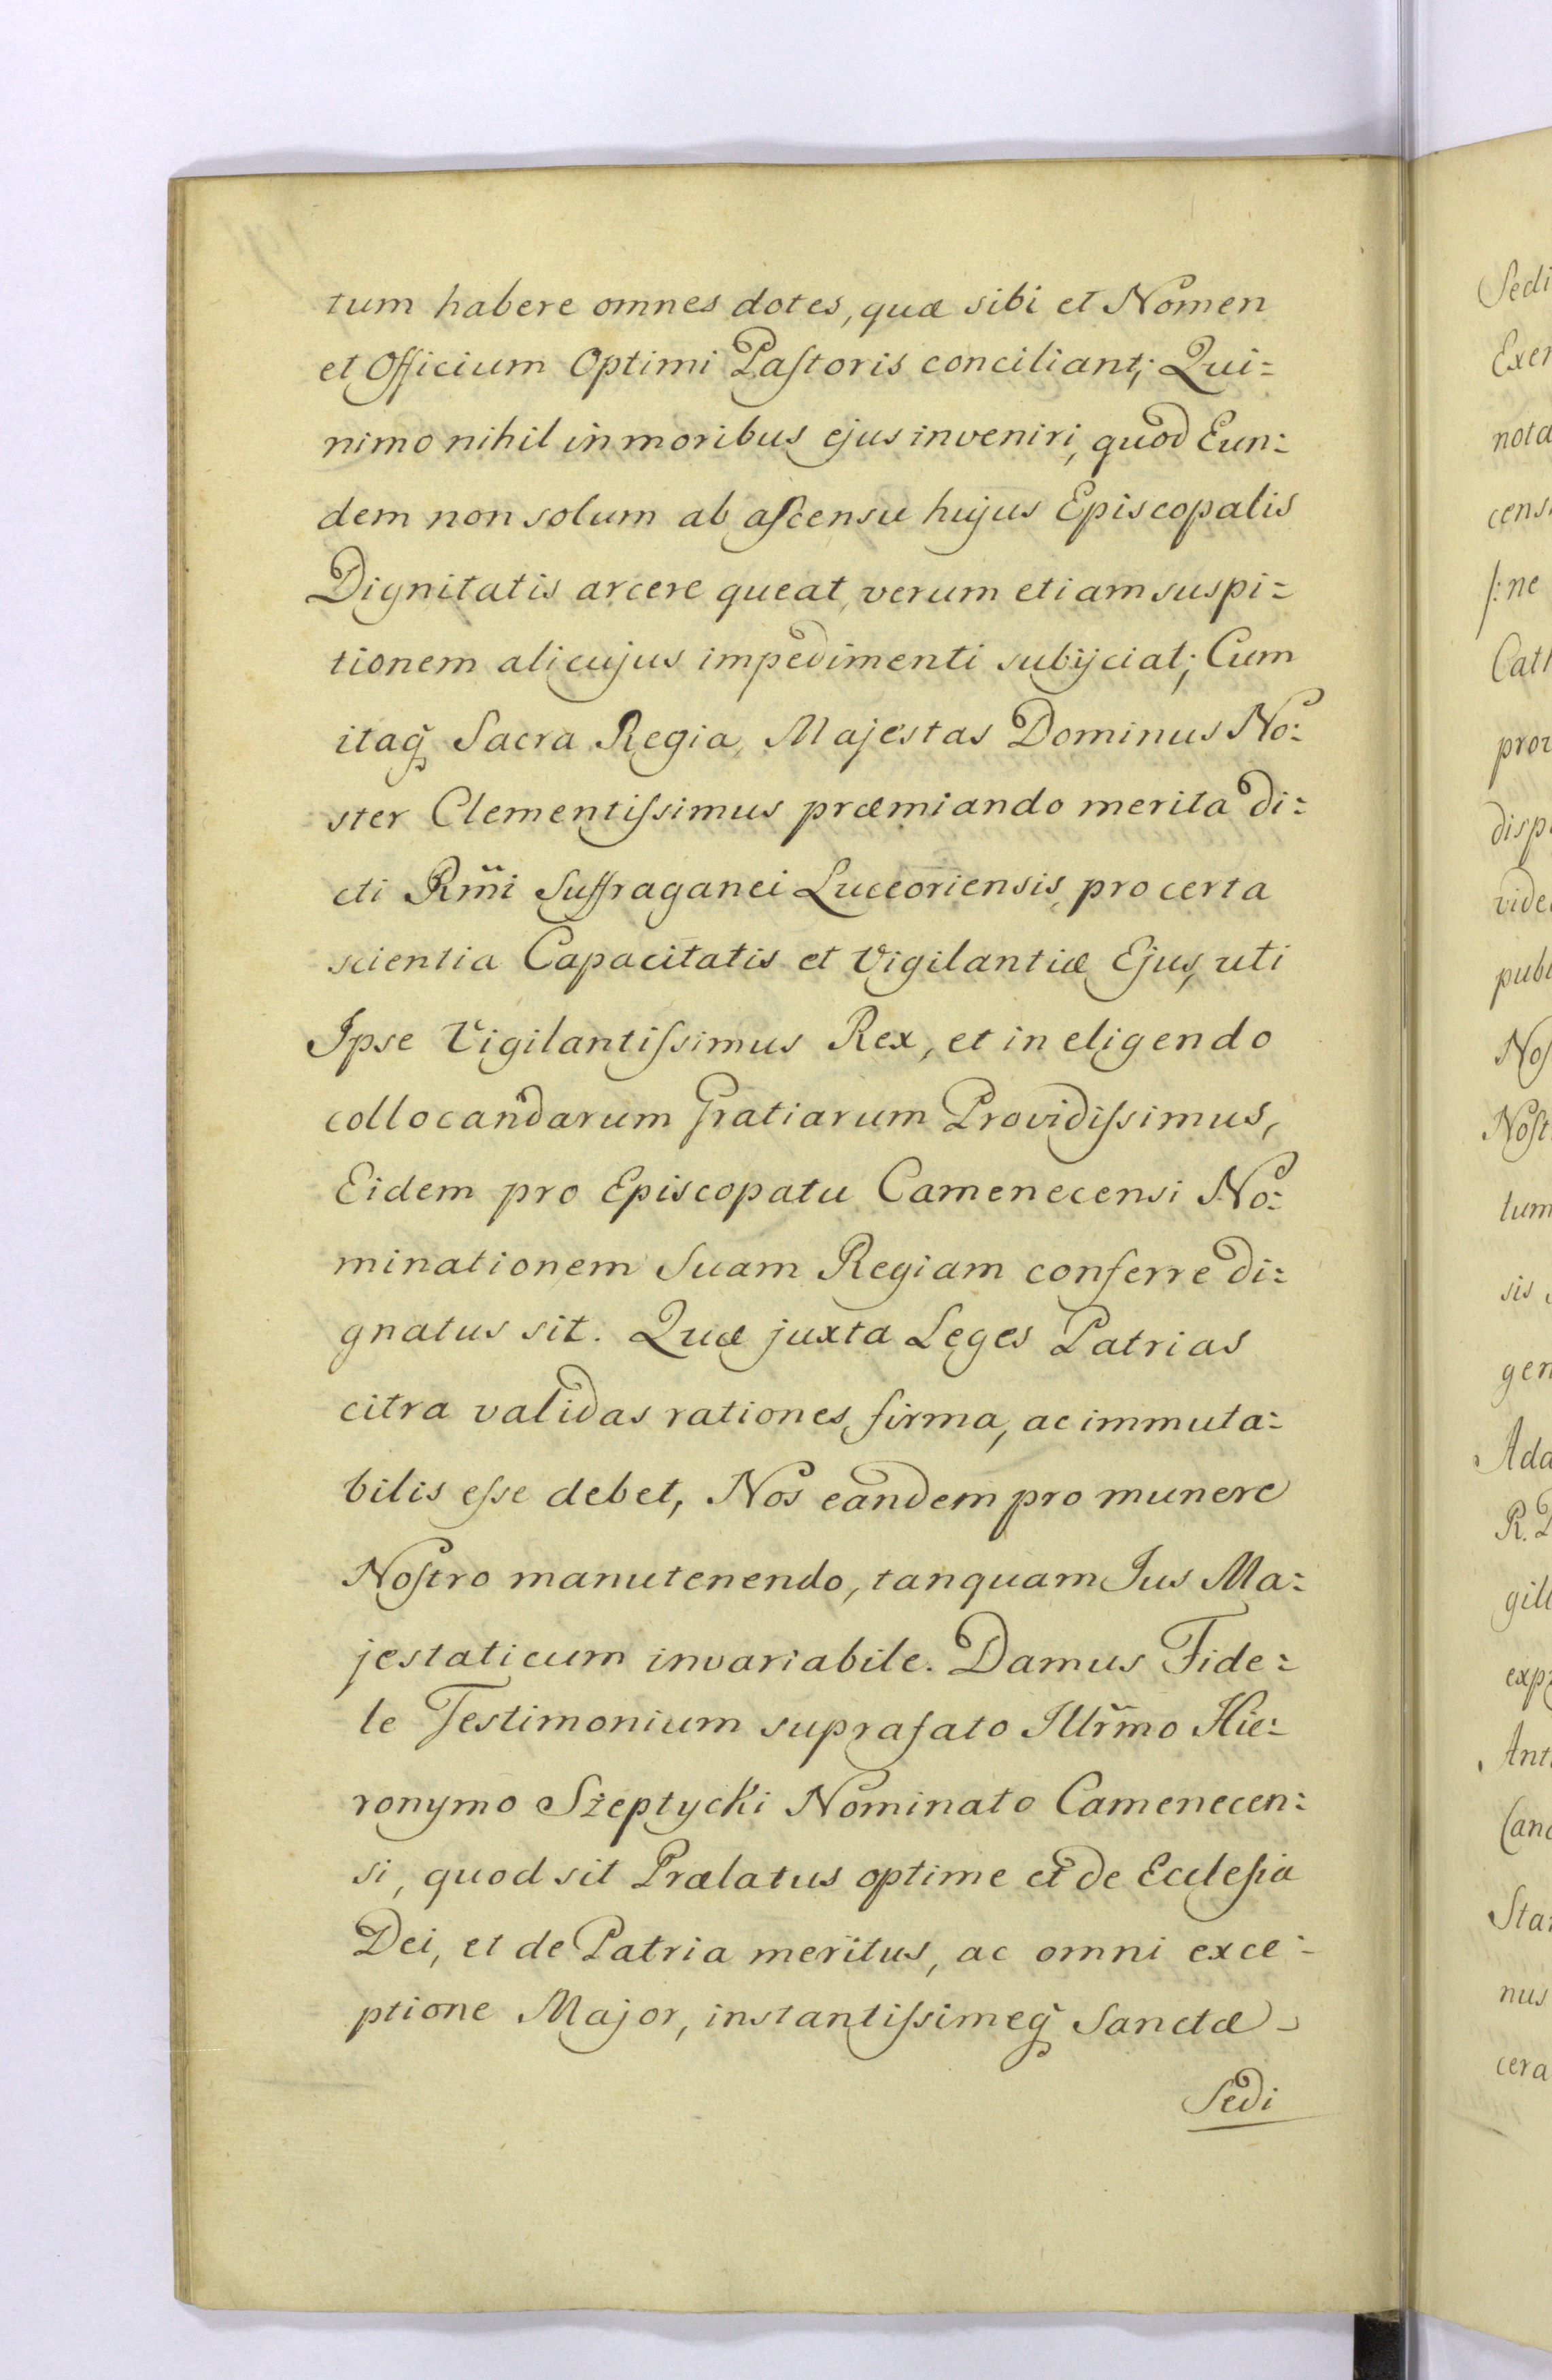 tum habere omnes dotes, quæ sibi et Nomen
et Officium Optimi Paſtoris conciliant; Qui=
nimo nihil in moribus ejus inveniri, quod Eun=
dem non solum ab aſcensu hujus Episcopalis
Dignitatis arcere queat, verum etiam suspi=
tionem alicujus impedimenti subijciat; Cum
itaq̃ Sacra Regia Majestas Dominus No=
ster Clementiſsimus præmiando merita di=
cti Rm̃i Suffraganei Luceoriensis, pro certa
scientia Capacitatis et Vigilantiæ Ejus, uti
Ipse Vigilantiſsimus Rex, et in eligendo
collocandarum Gratiarum Providiſsimus,
Eidem pro Episcopatu Camenecensi No=
minationem Suam Regiam conferre di=
gnatus sit. Quæ juxta Leges Patrias
citra validas rationes, firma, ac immuta=
bilis eſse debet, Nos eandem pro munere
Noſtro manutenendo, tanquam Jus Ma=
jestaticum invariabile. Damus Fide=
le Testimonium suprafato Illr̃mo Hie=
ronymo Szeptycki Nominato Camenecen=
si, quod sit Prælatus optime et de Eccleſia
Dei, et de Patria meritus, ac omni exce=
ptione Major, instantiſsimeq̃ Sanctæ
Sedi
Sedi
Exer
nota
censi
/:ne
Cath
prov
disp
vide
pub
Noſ
Noſt
tum
sis
gen
Ada
R.
gill
exp
Ant
(and
Sta
nus
cera